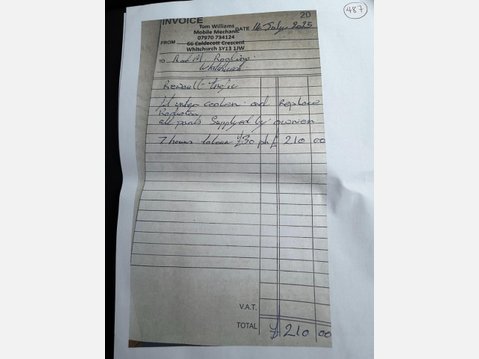 487
INVOICE 20
Tom Williams
Mobile Mechanic DATE 14 July 2025
07970 734124
FROM 66 Caldecott Crescent
Whitchurch SY13 1JW
TO Roofing
Whitchurch
Renault Trafic
cooler and Replace
Radiator
all parts Supplyed by owner
7 hours labour £30 ph £ 210 00
V.A.T.
TOTAL £ 210 00